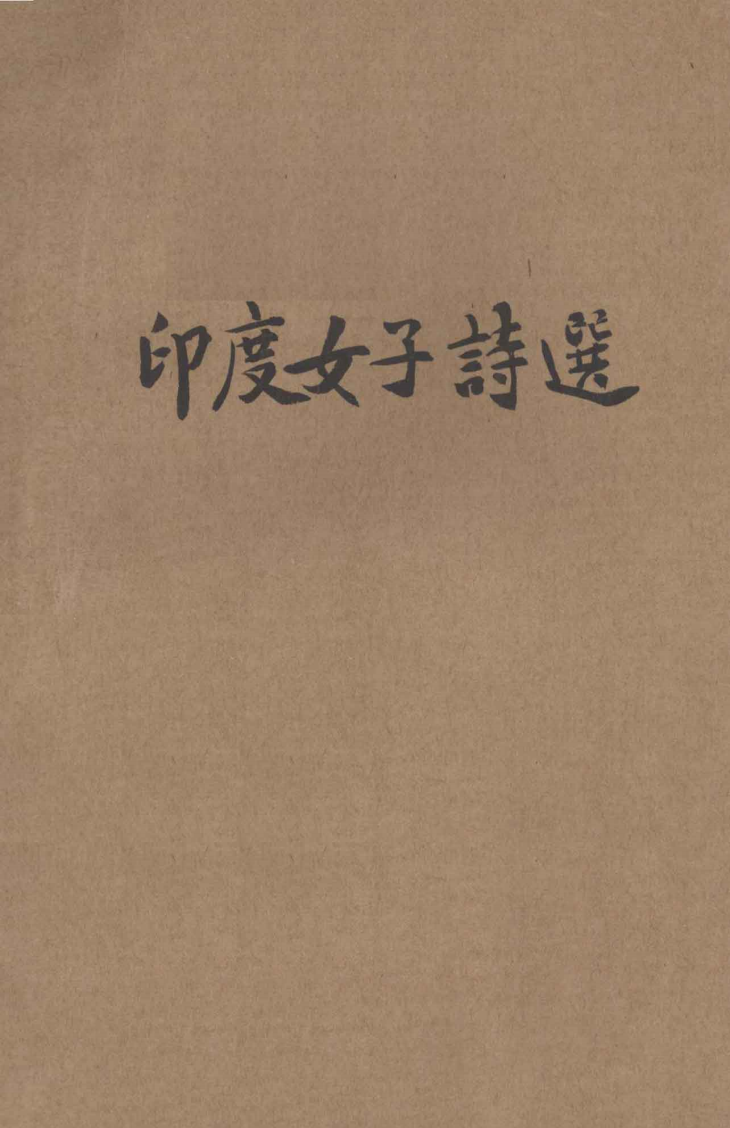 印度女子詩選